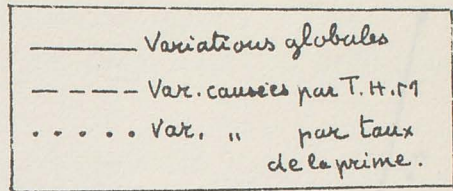 Variations globales
Var. causées par T.H.M
Var. " par taux
de la prime.